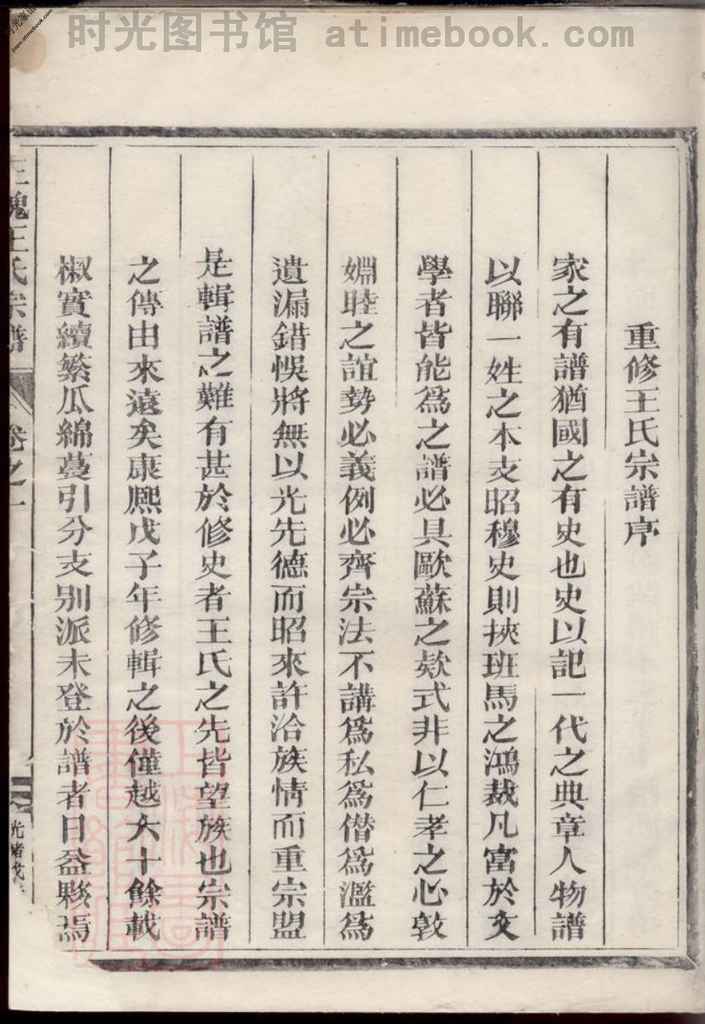 时光图书馆 atimebook.com
重修王氏宗譜序
家之有譜猶國之有史也史以記一代之典章人物譜
以聯一姓之本支昭穆史則挾班馬之鴻裁凡富於文
學者皆能為之譜必具歐蘇之欵式非以仁孝之心敦
婣睦之誼勢必義例必齊宗法不講為私為僭為濫為
遺漏錯悞將無以光先德而昭來許洽族情而重宗盟
是輯譜之難有甚於修史者王氏之先皆望族也宗譜
之傳由來遠矣康熈戊子年修輯之後僅越六十餘載
椒實續蘩瓜綿蔓引分支别派未登於譜者日益夥焉
槐王氏宗譜
卷之一
光緒戊